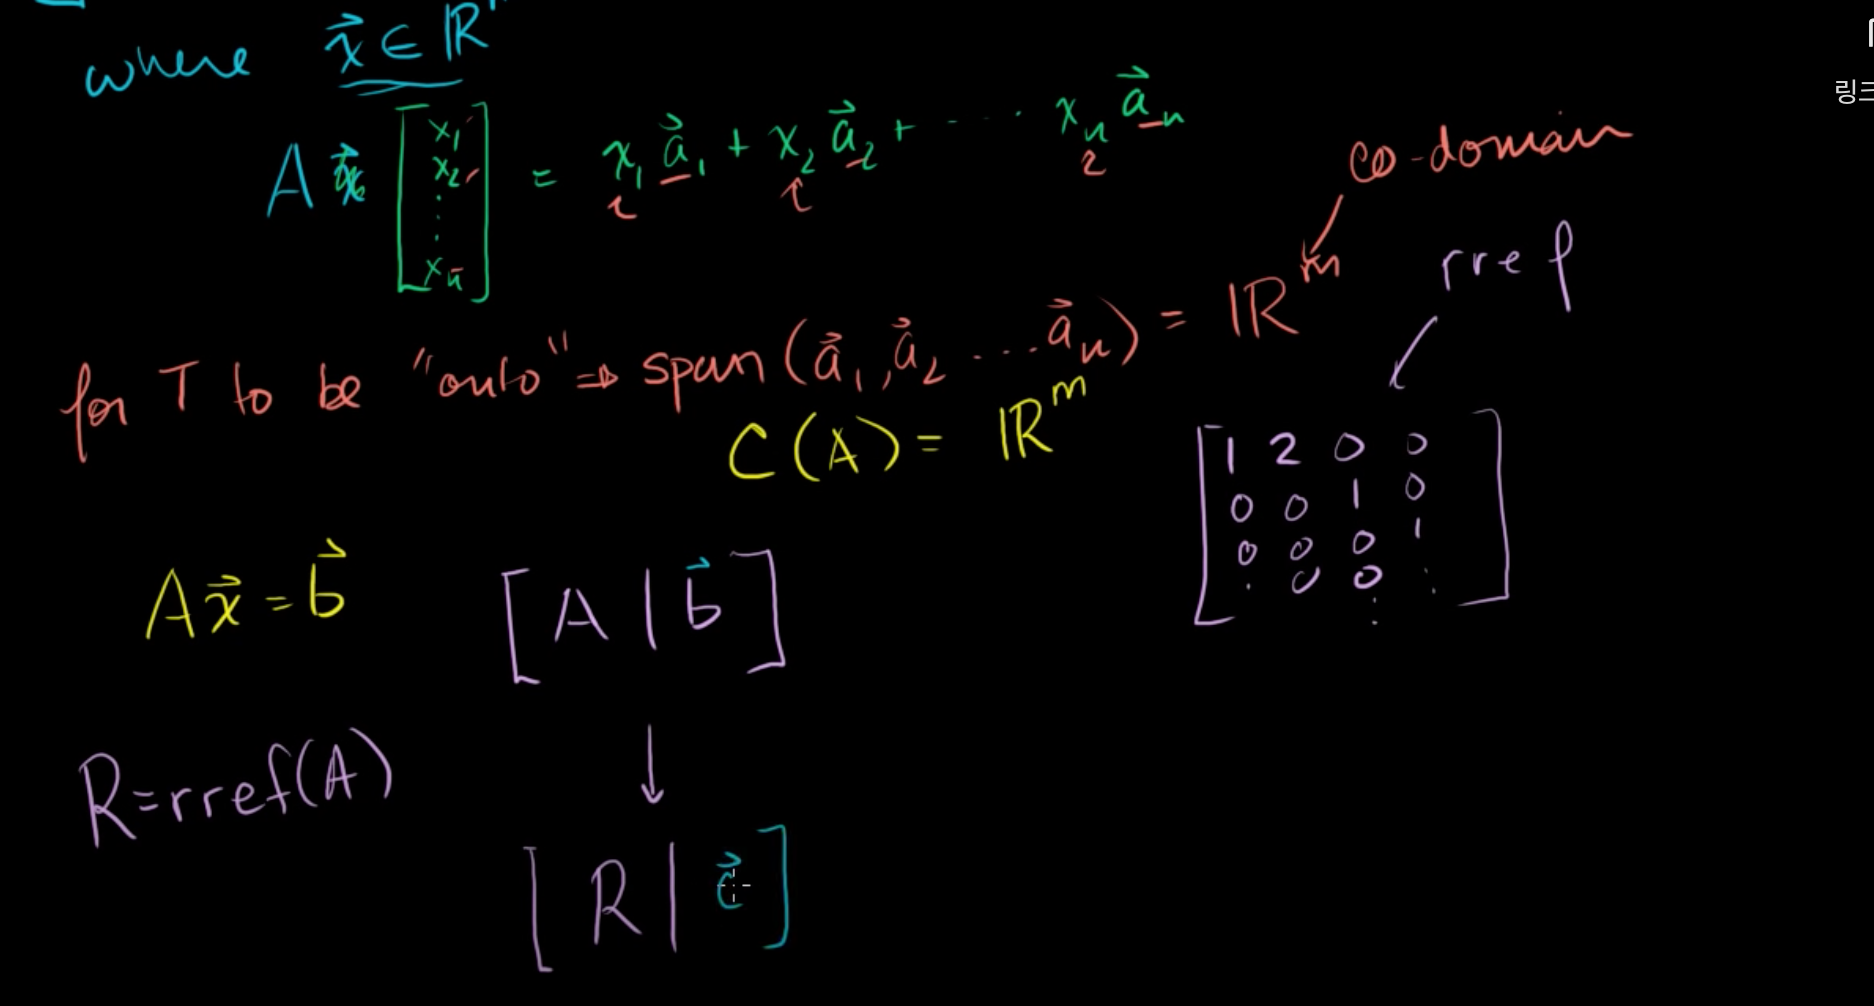 where x⃗ ∈ ℝⁿ
A x⃗ [x₁ x₂ ⋮ xₙ] = x₁a⃗₁ + x₂a⃗₂ + ⋯ xₙa⃗ₙ
co-domain
rref
for T to be "onto" ⇒ span (a⃗₁, a⃗₂ ... a⃗ₙ) = ℝᵐ
C(A) = ℝᵐ
1 2 0 0
0 0 1 0
0 0 0 1
. 0 0 .
Ax⃗ = b⃗ [A | b⃗]
R = rref(A)
[R | c⃗]